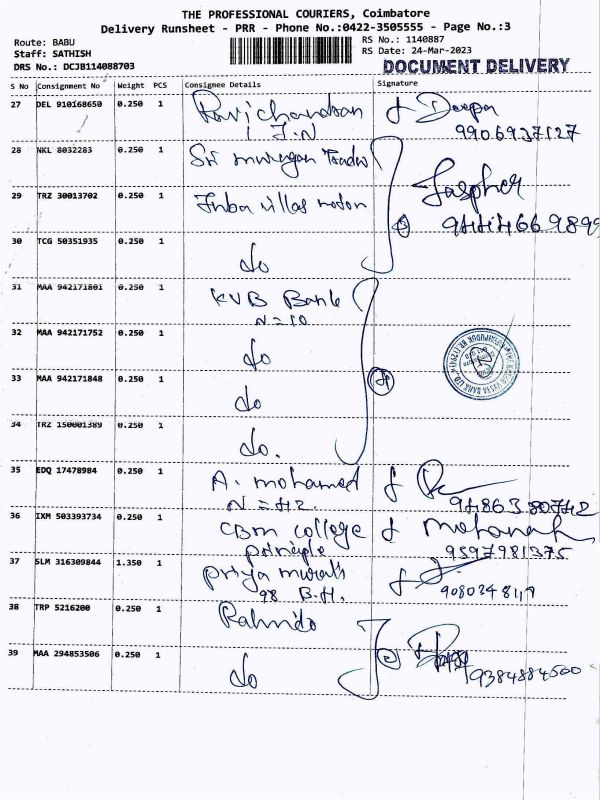 THE PROFESSIONAL COURIERS, Coimbatore
Delivery Runsheet - PRR - Phone No.:0422-3505555 - Page No.:3
Route: BABU
Staff: SATHISH
DRS No.: DCJB114088703
RS No.: 1140887
RS Date: 24-Mar-2023
DOCUMENT DELIVERY
S No Consignment No Weight PCS Consignee Details Signature
27 DEL 910168650 0.250 1 Ravichandran & Deepa
9906937127
28 NKL 8032283 0.250 1 Sri murugan Traders
29 TRZ 30013702 0.250 1 Inba villas motor Jaspher
30 TCG 50351935 0.250 1 do
31 MAA 942171801 0.250 1 KVB Bank
N=10
32 MAA 942171752 0.250 1 do
33 MAA 942171848 0.250 1 do
34 TRZ 150001389 0.250 1 do.
35 EDQ 17478984 0.250 1 A. mohamed
N = H2
36 IXM 503393734 0.250 1 CBM college & Mohanah
principle 9597981375
37 SLM 316309844 1.350 1 Priya murali
98 B.H.
38 TRP 5216200 0.250 1
39 MAA 294853506 0.250 1 do 9384884500